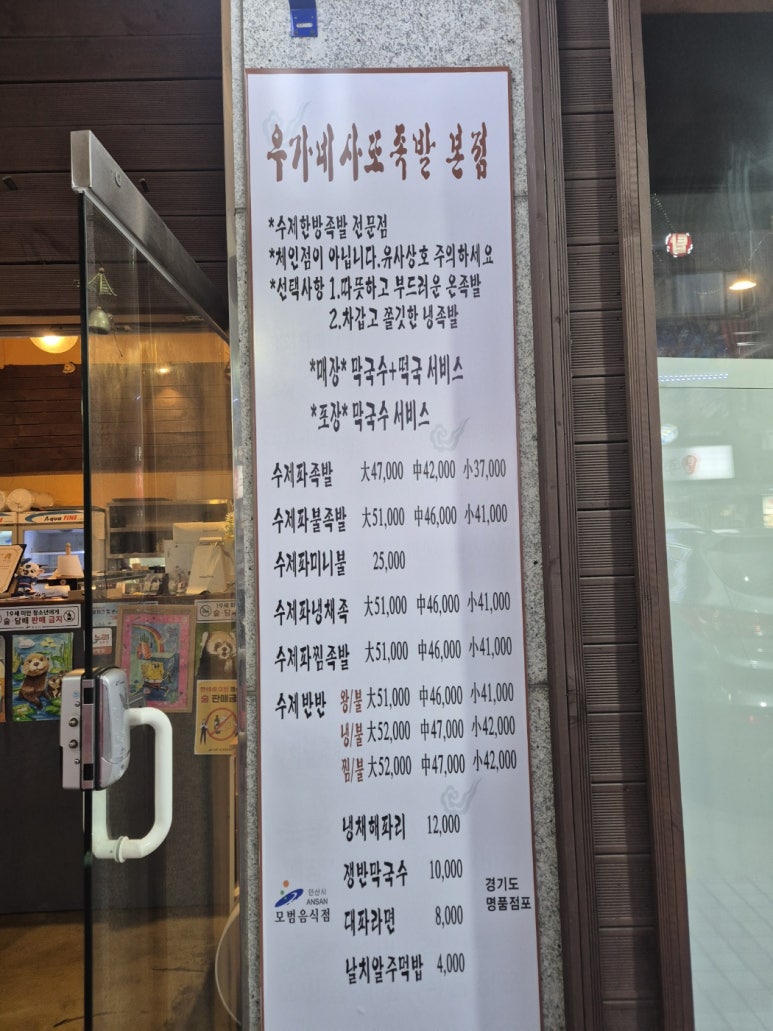 우가네사또족발 본점
*수제한방족발 전문점
*체인점이 아닙니다.유사상호 주의하세요
*선택사항 1.따뜻하고 부드러운 온족발
2.차갑고 쫄깃한 냉족발
*매장* 막국수+떡국 서비스
*포장* 막국수 서비스
수제파족발 大47,000 中42,000 小37,000
수제파불족발 大51,000 中46,000 小41,000
수제파미니불 25,000
수제파냉채족 大51,000 中46,000 小41,000
수제파찜족발 大51,000 中46,000 小41,000
수제반반 왕/불 大51,000 中46,000 小41,000
냉/불 大52,000 中47,000 小42,000
찜/불 大52,000 中47,000 小42,000
냉채해파리 12,000
쟁반막국수 10,000
대파라면 8,000
날치알주먹밥 4,000
안산시
ANSAN
모범음식점
경기도
명품점포
Aqua FINE
19세 미만 청소년에게
술·담배 판매 금지
19세
술·담
술 판매금